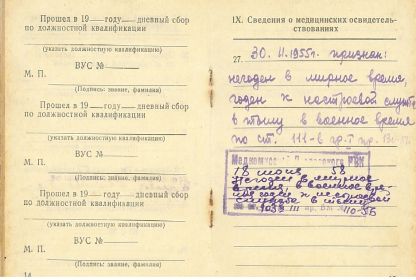 Прошел в 19 — году — дневный сбор
по должностной квалификации
(указать должностную квалификацию)
ВУС №
М. П.
(Подпись: звание, фамилия)
Прошел в 19 — году — дневный сбор
по должностной квалификации
(указать должностную квалификацию)
ВУС №
М. П.
(Подпись: звание, фамилия)
Прошел в 19 — году — дневный сбор
по должностной квалификации
(указать должностную квалификацию)
ВУС №
М. П.
(Подпись: звание, фамилия)
14
IX. Сведения о медицинских освидетель-
ствованиях
27. 30. 1955г. признан:
негоден в мирное время,
годен к нестроевой службе
в тылу в военное время
по ст. 111-б гр. I пр.
Медкомиссией РВК
18 июня 58
Негоден в мирное
время, в военное вре-
мя годен к нестроевой
службе в тылу